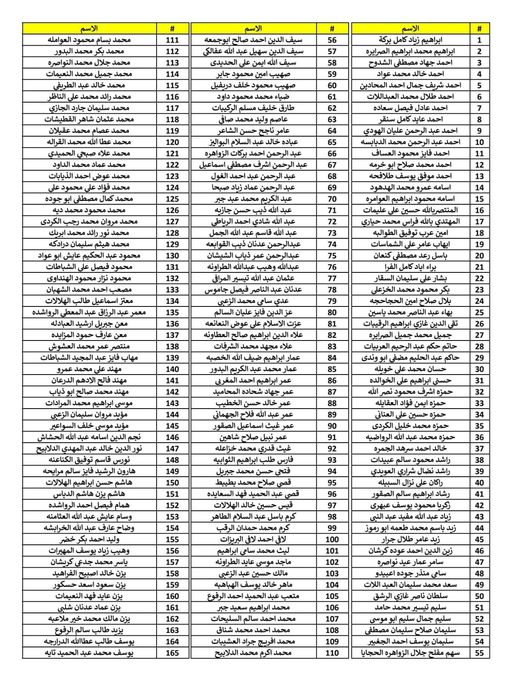 # الاسم
1 ابراهيم زياد كامل بركة
2 ابراهيم محمد ابراهيم الصرايره
3 احمد جهاد مصطفى الشدوح
4 احمد خالد محمد عواد
5 احمد شريف جمال احمد المحادين
6 احمد طلال محمد العبداللات
7 احمد عادل فيصل سعاده
8 احمد عايد كامل سنقر
9 احمد عبد الرحمن عليان الهودي
10 احمد عبد الرحمن محمد الدبايسه
11 احمد فايز محمود العساف
12 احمد محمد صلاح ابو خرمه
13 احمد موفق يوسف طلافحه
14 اسامه عمرو محمد الهدهود
15 اسامه محمود ابراهيم العوامره
16 المنتصربالله حسين علي عليمات
17 المهتدي بالله فراس محمد حياري
18 امين عرب توفيق الطوالبه
19 ايهاب عامر علي الشماسات
20 باسل رعد مصطفى كنعان
21 براء اياد كامل الفرا
22 بشار علي سليمان السقار
23 بكر محمود محمد الخزعلي
24 بلال صلاح امين الحجاحجه
25 بهاء عبد الناصر محمد ياسين
26 تقي الدين غازي ابراهيم الرقيبات
27 جميل محمد جميل الصرايره
28 حاتم حكم عبد الرحيم العربيات
29 حاكم عبد الحليم مفضي ابو وندي
30 حسان محمد علي خويله
31 حسني ابراهيم علي الخوالده
32 حمزه اشرف محمود نصر الله
33 حمزه ايمن فؤاد العقايله
34 حمزه حسين علي العناني
35 حمزه محمد خليل الكردي
36 حمزه محمد عبد الله الرواضيه
37 خالد احمد سرهد الجمره
38 راشد محمود سالم عبيدات
39 راشد نضال شراري العويدي
40 راكان علي نزال السبيله
41 رشاد ابراهيم سالم الصقور
42 زكريا محمود يوسف عبهري
43 زياد عبد الله مفيد عبد النبي
44 زيد باسم محمد طعمه ابو رموز
45 زيد عامر طلال جرار
46 زين الدين احمد عوده كرشان
47 سامر عمار عبد نواصره
48 سامي منذر جوده اعبيدو
49 سعد محمد سليمان العبد اللات
50 سلطان ناصر غازي الرشق
51 سليم تيسير محمد حامد
52 سليم جمال سليم ابو موسى
53 سليمان صلاح سليمان مصطفى
54 سليمان يوسف احمد الجفيير
55 سهم مفلح جلال الزواهره الحجايا
# الاسم
56 سيف الدين احمد صالح ابوجمعه
57 سيف الدين سهيل عبد الله عفالكي
58 سيف الله ايمن علي الحديدي
59 صهيب امين محمود جابر
60 صهيب محمود خلف دريفيل
61 ضياء محمد محمود داود
62 طارق خليف مسلم الركيبات
63 عاصم وليد محمد صافي
64 عامر ناجح حسن الشاعر
65 عباده خالد عبد السلام البواليز
66 عبد الرحمن احمد بركات الزواهره
67 عبد الرحمن اشرف مصطفى اسماعيل
68 عبد الرحمن احمد الغول
69 عبد الرحمن عماد زياد صبحا
70 عبد الكريم محمد عبد جبر
71 عبد الله ذيب حسن جازيه
72 عبد الله شادي احمد الرباطي
73 عبد الله قاسم عبد الله الجمل
74 عبدالرحمن عدنان ذيب القوابعه
75 عبدالرحمن عمر ذياب الشيشان
76 عبدالله وهيب عبدالله الطراونه
77 عثمان عبد الله تيسير العراقي
78 عدنان عبد الناصر فيصل جاموس
79 عدي سامي محمد الزعبي
80 عز الدين فايز عليان السالم
81 عزت الاسلام علي عوض النعانعه
82 علاء الدين ابراهيم صالح العطاونه
83 علاء مجهد محمد الشرفات
84 عمار ابراهيم ضيف الله الخصبه
85 عمار محمد عبد الكريم البدور
86 عمر ابراهيم احمد المغربي
87 عمر جهاد شحاده المحاميد
88 عمر خالد حسن الخطيب
89 عمر عبد الله فلاح الجهماني
90 عمر غيث اسماعيل الصقور
91 عمر نبيل صلاح شاهين
92 غيث قدري محمد خزاعله
93 فارس طلب ابراهيم الثوابيه
94 فتحي حسن محمد جبريل
95 قصي صلاح محمد بطيبط
96 قصي عبد الحميد فهد السعايده
97 قيس حسين خالد الهلالات
98 كرم باسل عبد السلام الطاهر
99 كرم محمد حمدان الرقب
100 لافي احمد لافي البريزات
101 ليث محمد سامي ابراهيم
102 ماجد موسى عايد الطراونه
103 مالك حسين عبد الزعبي
104 ماهر خالد يوسف الهباهبه
105 متعب عبد الحميد احمد الرفوع
106 محمد ابراهيم سعيد جبر
107 محمد احمد سالم السليحات
108 محمد احمد محمد شناق
109 محمد افريج جراد العثيمات
110 محمد اكرم محمد الدلابيح
# الاسم
111 محمد بسام محمود العوامله
112 محمد بكر محمد البدور
113 محمد جلال محمد النواصره
114 محمد جميل محمد النعيمات
115 محمد خالد عبد الطريفي
116 محمد رائد محمد علي الناظر
117 محمد سليمان جارد الجازي
118 محمد عثمان شاهر القطيشات
119 محمد عصام محمد عقيلان
120 محمد عطا الله محمد القراله
121 محمد علاء صبحي الحميدي
122 محمد عماد محمد الداود
123 محمد عوض احمد الذيابات
124 محمد فؤاد علي محمود علي
125 محمد كمال مصطفى ابو جوده
126 محمد محمود محمد ديه
127 محمد مروان محمد رجب الكردي
128 محمد نور رائد محمد ابريك
129 محمد هيثم سليمان درادكه
130 محمود عبد الحكيم عايش ابو عواد
131 محمود فيصل علي الشباطات
132 محمود نزار محمود الهنداوي
133 مصعب احمد محمد الشهبان
134 معتز اسماعيل طالب الهلالات
135 معمر عبد الرزاق عبد المعطي الرواشده
136 معن جبريل ارشيد العبادله
137 معن عارف حمود المزايده
138 منتصر عمر محمد العشوش
139 مهاب فايز عبد المجيد الشباطات
140 مهند علي محمد عمرو
141 مهند فالح الادهم الدرعان
142 مهند محمد صالح ابو ذياب
143 موسى ابراهيم محمد المرادات
144 مؤيد مروان سليمان الزعبي
145 مؤيد موسى خلف السواعير
146 نجم الدين اسامه عبد الله الحشاش
147 نور الدين خالد عبد المهدي الدلابيح
148 نورس قاسم توفيق الكتاعنه
149 هارون الرشيد فايز سالم مرابحه
150 هاشم حسن ابراهيم الهلالات
151 هاشم يزن هاشم الدباس
152 همام فيصل احمد الرواشده
153 وسام عايش عبد الله العثامنه
154 وضاح عارف عبد الله الخرابشه
155 وليد احمد بكر خضر
156 وهيب زياد يوسف المهيرات
157 ياسر محمد جدعي كريشان
158 يزن خالد اصبيح القراهيد
159 يزن سعود اسعد حسكور
160 يزن عايد فهد النعيمات
161 يزن عماد عدنان شلبي
162 يزن مالك محمد خير ملاعبه
163 يزيد طالب سالم الرفوع
164 يوسف طالب عطاالله الدرارجه
165 يوسف محمد عبد الحميد تايه